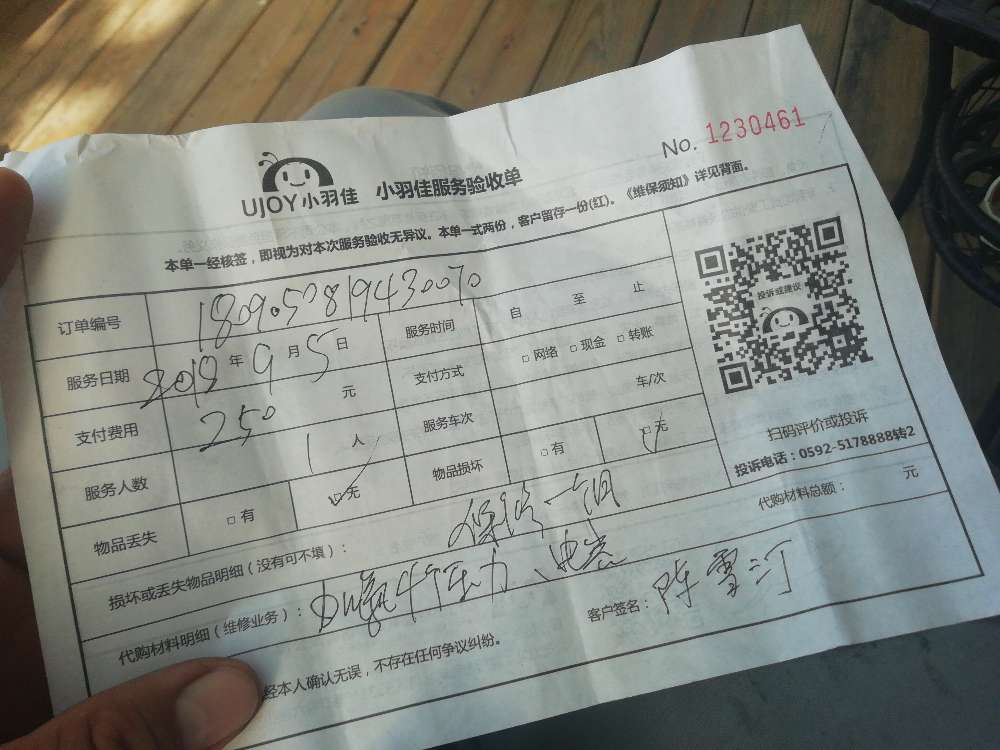 No. 1230461
UJOY小羽佳 小羽佳服务验收单
本单一经核签，即视为对本次服务验收无异议。本单一式两份，客户留存一份(红)。《维保须知》详见背面。
订单编号 1809050819430070
服务时间 自 至 止
服务日期 2018年9月5日
支付方式 □网络 □现金 □转账
支付费用 250 元
服务车次 车/次
服务人数 1 人
物品损坏 □有 □无
物品丢失 □有 □无
投诉或建议
扫码评价或投诉
投诉电话：0592-5178888转2
损坏或丢失物品明细（没有可不填）：
保修一个月
代购材料总额： 元
代购材料明细（维修业务）：
加氟 压力、电容
经本人确认无误，不存在任何争议纠纷。
客户签名：陈雪汀